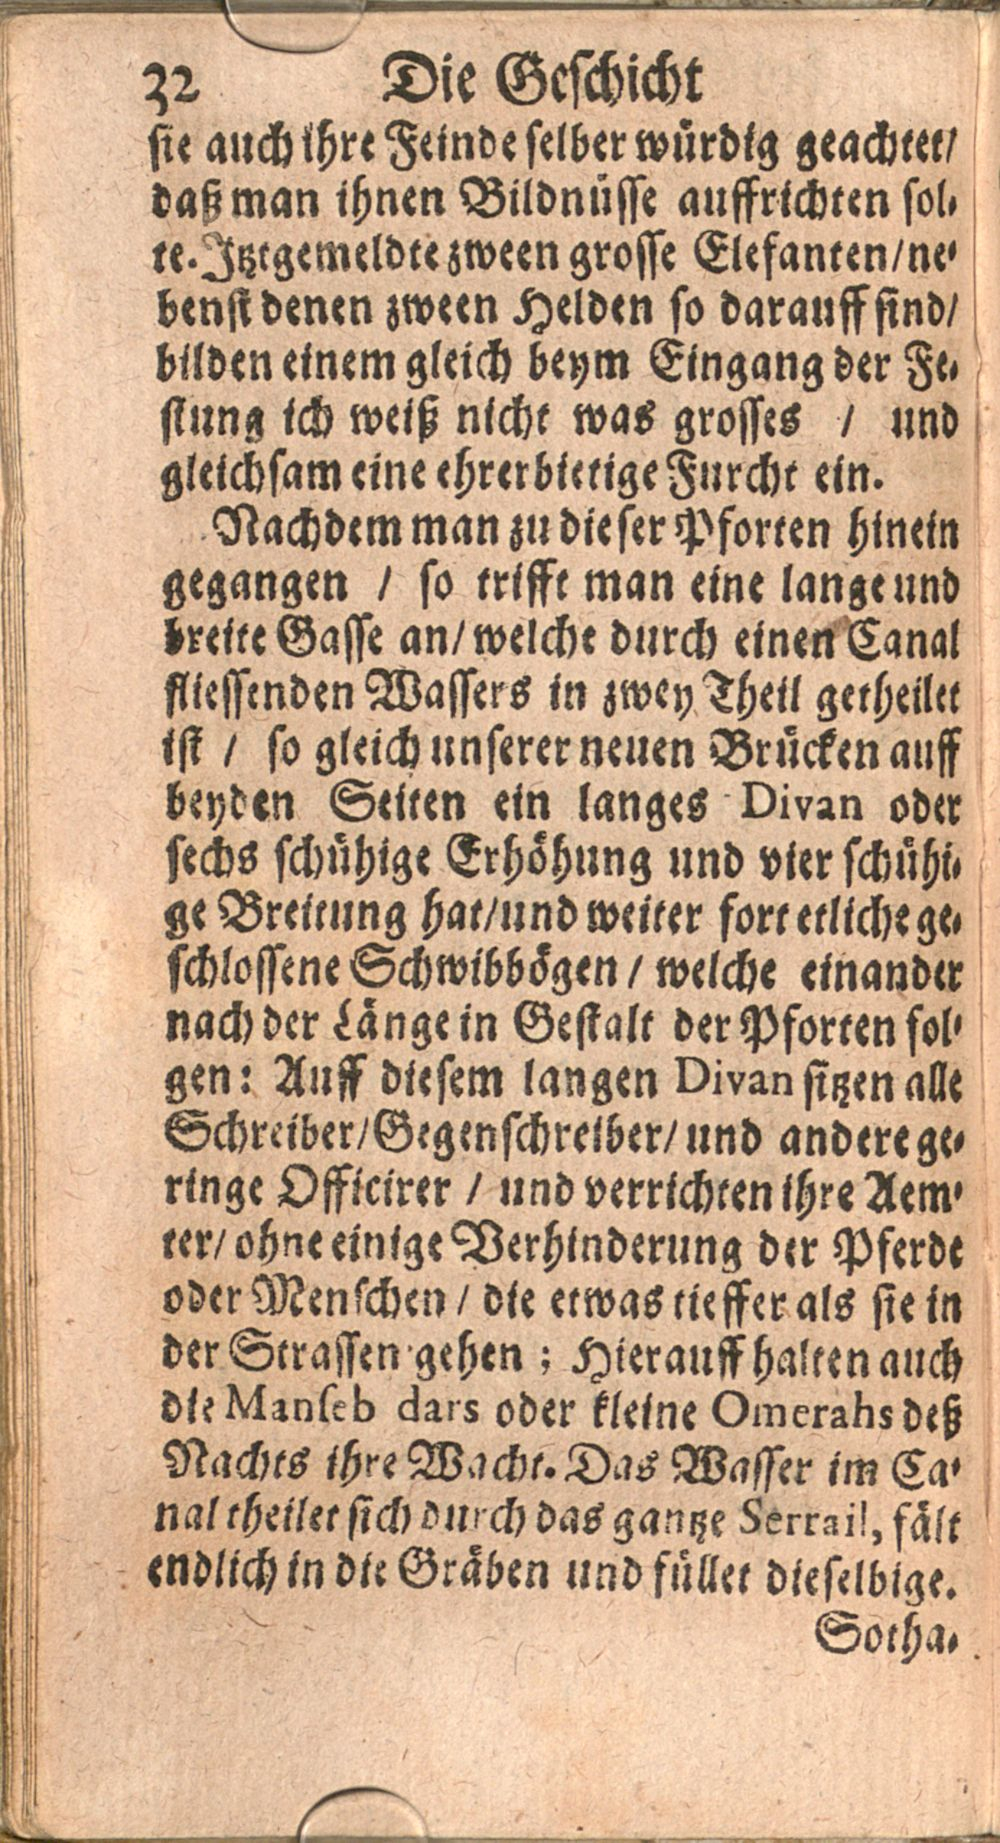 32 Die Geschicht
sie auch ihre Feinde selber würdig geachtet/
daß man ihnen Bildnüsse auffrichten sol-
te. Jtztgemeldte zween grosse Elefanten/ ne-
benst denen zween Helden so darauff sind/
bilden einem gleich beym Eingang der Fe-
stung ich weiß nicht was grosses / und
gleichsam eine ehrerbietige Furcht ein.
Nachdem man zu dieser Pforten hinein
gegangen / so trifft man eine lange und
breite Gasse an/ welche durch einen Canal
fliessenden Wassers in zwey Theil getheilet
ist / so gleich unserer neuen Brücken auff
beyden Seiten ein langes Divan oder
sechs schühige Erhöhung und vier schühi-
ge Breitung hat/ und weiter fort etliche ge-
schlossene Schwibbögen / welche einander
nach der Länge in Gestalt der Pforten fol-
gen: Auff diesem langen Divan sitzen alle
Schreiber/ Gegenschreiber/ und andere ge-
ringe Officirer / und verrichten ihre Aem-
ter/ ohne einige Verhinderung der Pferde
oder Menschen / die etwas tieffer als sie in
der Strassen gehen ; Hierauff halten auch
die Manseb dars oder kleine Omerahs deß
Nachts ihre Wacht. Das Wasser im Ca-
nal theilet sich durch das gantze Serrail, fält
endlich in die Gräben und füllet dieselbige.
Sotha-